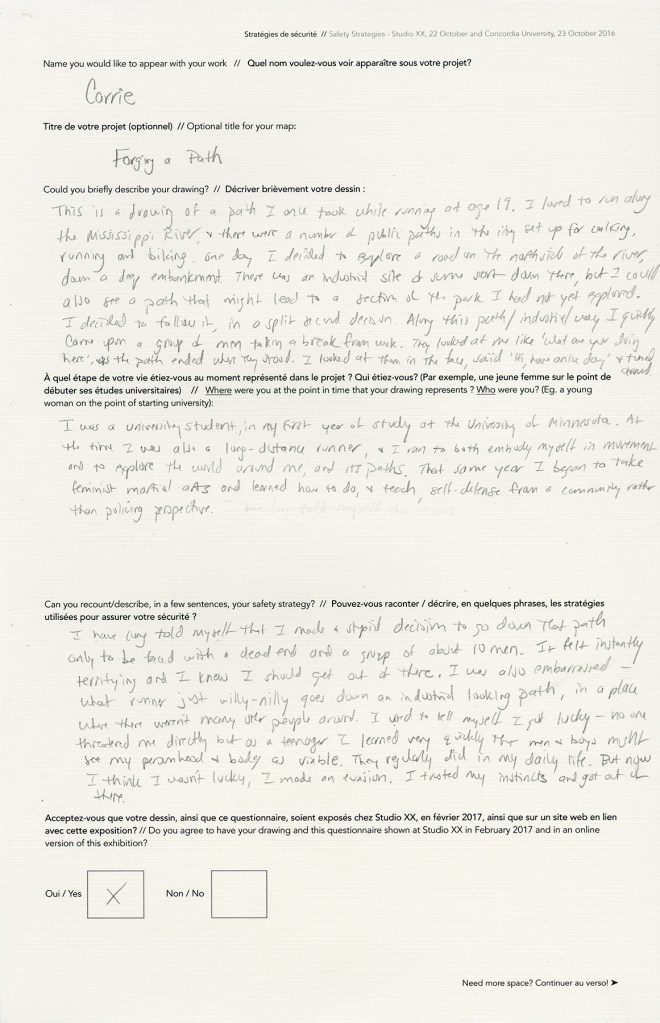 Stratégies de sécurité // Safety Strategies - Studio XX, 22 October and Concordia University, 23 October 2016
Name you would like to appear with your work // Quel nom voulez-vous voir apparaître sous votre projet?
Carrie
Titre de votre projet (optionnel) // Optional title for your map:
Forging a Path
Could you briefly describe your drawing? // Décriver brièvement votre dessin :
This is a drawing of a path I once took while running at age 19. I loved to run along
the Mississippi River, & there were a number of public paths in the city set up for walking,
running and biking. One day I decided to explore a road on the northside of the river,
down a deep embankment. There was an industrial site of some sort down there, but I could
also see a path that might lead to a section of the park I had not yet explored.
I decided to follow it, in a split second decision. Along this path/industrial way I quickly
Came upon a group of men taking a break from work. They looked at me like 'what are you doing
here', as the path ended where they stood. I looked at them in the face, said 'Hi, have a nice day' & turned
around.
À quel étape de votre vie étiez-vous au moment représenté dans le projet ? Qui étiez-vous? (Par exemple, une jeune femme sur le point de
débuter ses études universitaires) // Where were you at the point in time that your drawing represents ? Who were you? (Eg. a young
woman on the point of starting university):
I was a university student, in my first year of study at the University of Minnesota. At
the time I was also a long-distance runner, & I ran to both embody myself in movement
and to explore the world around me, and its paths. That same year I began to take
feminist martial arts and learned how to do, & teach, self-defense from a community rather
than policing perspective.
Can you recount/describe, in a few sentences, your safety strategy? // Pouvez-vous raconter / décrire, en quelques phrases, les stratégies
utilisées pour assurer votre sécurité ?
I have long told myself that I made a stupid decision to go down that path
only to be faced with a dead end and a group of about 10 men. It felt instantly
terrifying and I knew I should get out of there. I was also embarrassed —
what runner just willy-nilly goes down an industrial looking path, in a place
where there weren't many other people around. I used to tell myself I got lucky – no one
threatened me directly but as a teenager I learned very quickly that men & boys might
see my personhood & body as viable. They regularly did in my daily life. But now
I think I wasn't lucky, I made an evasion. I trusted my instincts and got out of
there.
Acceptez-vous que votre dessin, ainsi que ce questionnaire, soient exposés chez Studio XX, en février 2017, ainsi que sur un site web en lien
avec cette exposition? // Do you agree to have your drawing and this questionnaire shown at Studio XX in February 2017 and in an online
version of this exhibition?
Oui / Yes X Non / No
Need more space? Continuer au verso! ➤